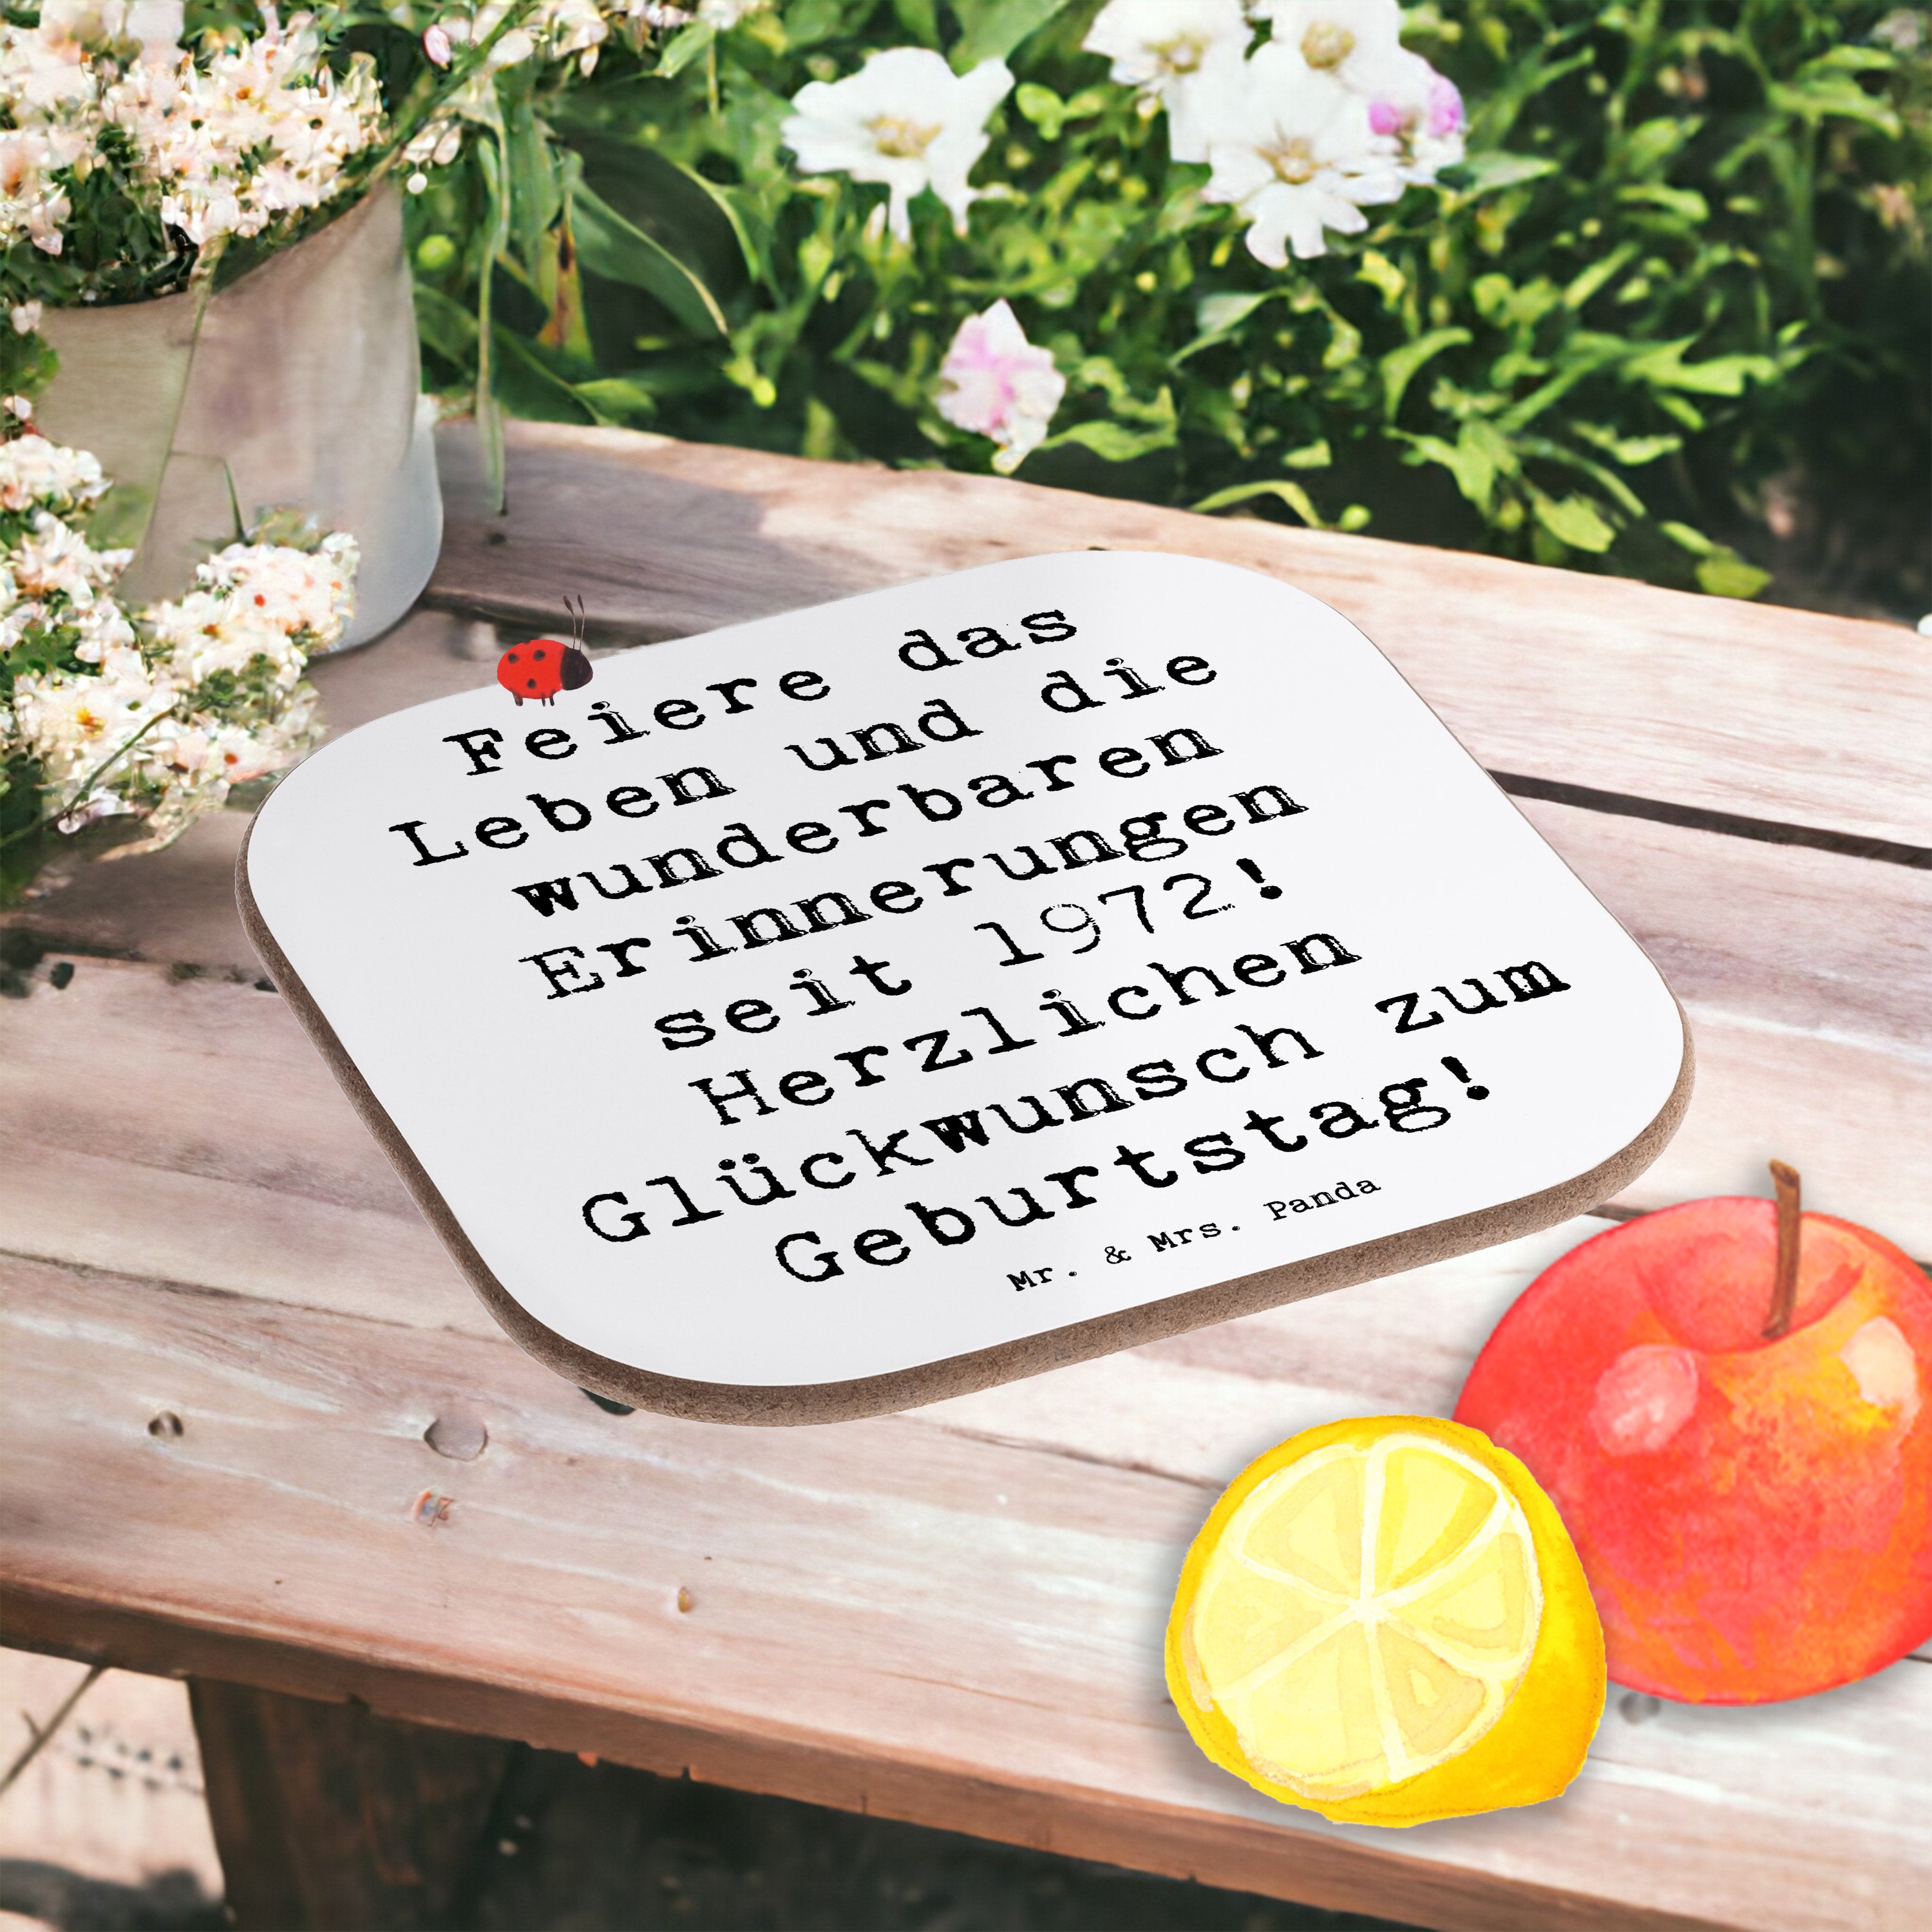 Feiere das
Leben und die
wunderbaren
Erinnerungen
seit 1972!
Herzlichen
Glückwunsch zum
Geburtstag!
Mr. & Mrs. Panda